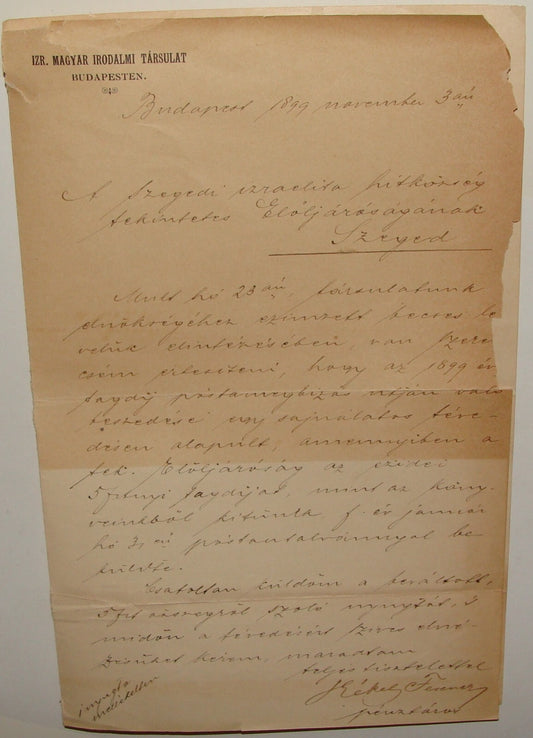 IZR. MAGYAR IRODALMI TÁRSULAT
BUDAPESTEN.
Budapest 1899 november 3 án
A Szegedi izraelita hitközség
tekintetes Elöljáróságának
Szeged
Mult hó 23 án, társulatunk
elnökségéhez czimzett becses le
velük elintézésében, van szeren
csém értesiteni, hogy az 1899 év
tagdij póstamegbizás utján való
beszedése egy sajnálatos téve
désen alapult, amennyiben a
tek. Elöljáróság az ezidei
5 frtnyi tagdijat, mint az köny
veinkből kitünik f. év január
hó 31 én póstautalvánnyal be
küldte.
Csatoltan küldöm a beváltott,
5 frt összegről szoló nyugtát, s
midőn a tévedésért szives elné
zésüket kérem, maradtam
teljes tisztelettel
Székely Ferencz
pénztáros
1 nyugta
mellékelten